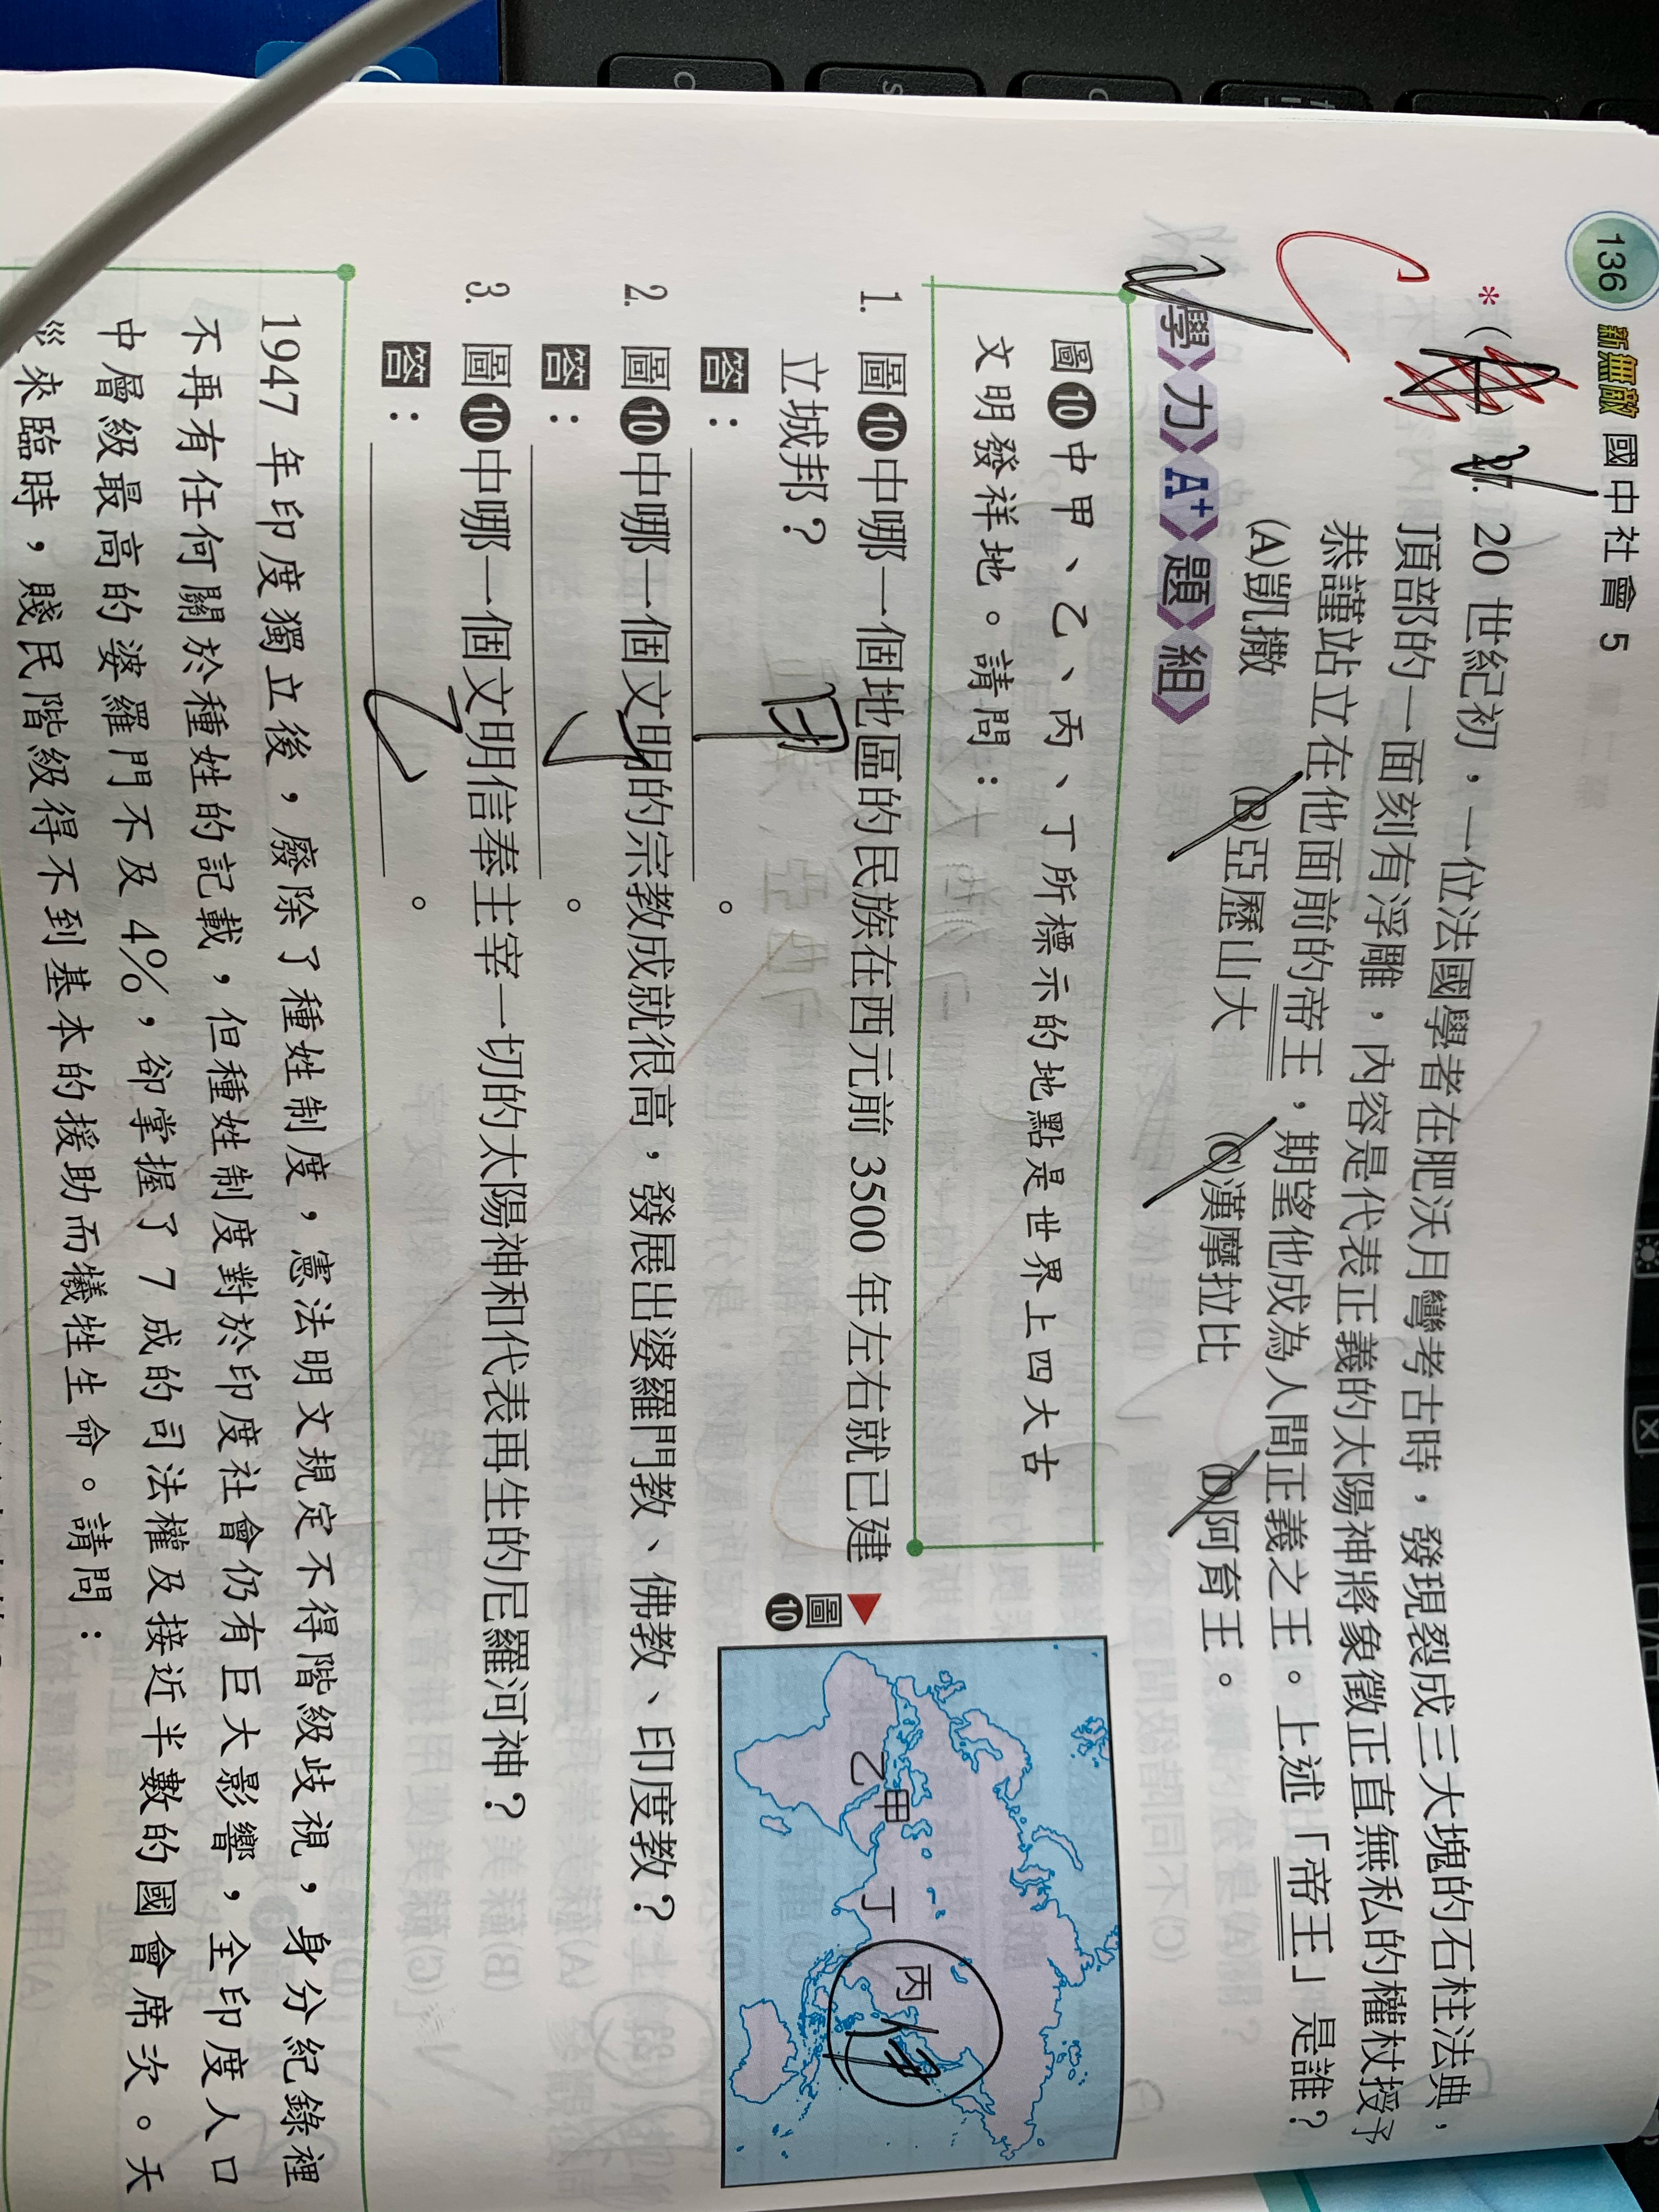 136 新無敵 國中社會 5
*( ) 27. 20 世紀初，一位法國學者在肥沃月彎考古時，發現裂成三大塊的石柱法典，
頂部的一面刻有浮雕，內容是代表正義的太陽神將象徵正直無私的權杖授予
恭謹站立在他面前的帝王，期望他成為人間正義之王。上述「帝王」是誰？
(A)凱撒 (B)亞歷山大 (C)漢摩拉比 (D)阿育王。
學力A+題組
圖❿中甲、乙、丙、丁所標示的地點是世界上四大古
文明發祥地。請問：
1. 圖❿中哪一個地區的民族在西元前 3500 年左右就已建
立城邦？
答：甲。
2. 圖❿中哪一個文明的宗教成就很高，發展出婆羅門教、佛教、印度教？
答：丁。
3. 圖❿中哪一個文明信奉主宰一切的太陽神和代表再生的尼羅河神？
答：乙。
▲圖❿
甲
乙
丁
丙
1947 年印度獨立後，廢除了種姓制度，憲法明文規定不得階級歧視，身分紀錄裡
不再有任何關於種姓的記載，但種姓制度對於印度社會仍有巨大影響，全印度人口
中層級最高的婆羅門不及 4%，卻掌握了 7 成的司法權及接近半數的國會席次。天
災來臨時，賤民階級得不到基本的援助而犧牲生命。請問：